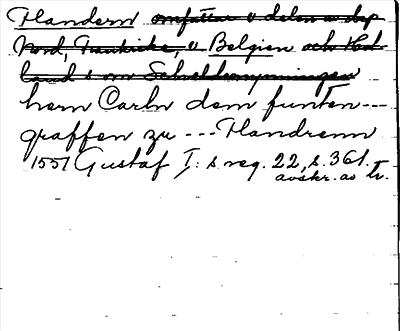 Flandern omfattar v delen av dep
Nord, Frankrike, o Belgien och Hol-
land s om Scheldemynningen
herrn Carln dem funten---
graffen zu --- Flandrenn
1551 Gustaf I: s reg. 22, s. 361.
avskr. av tr.